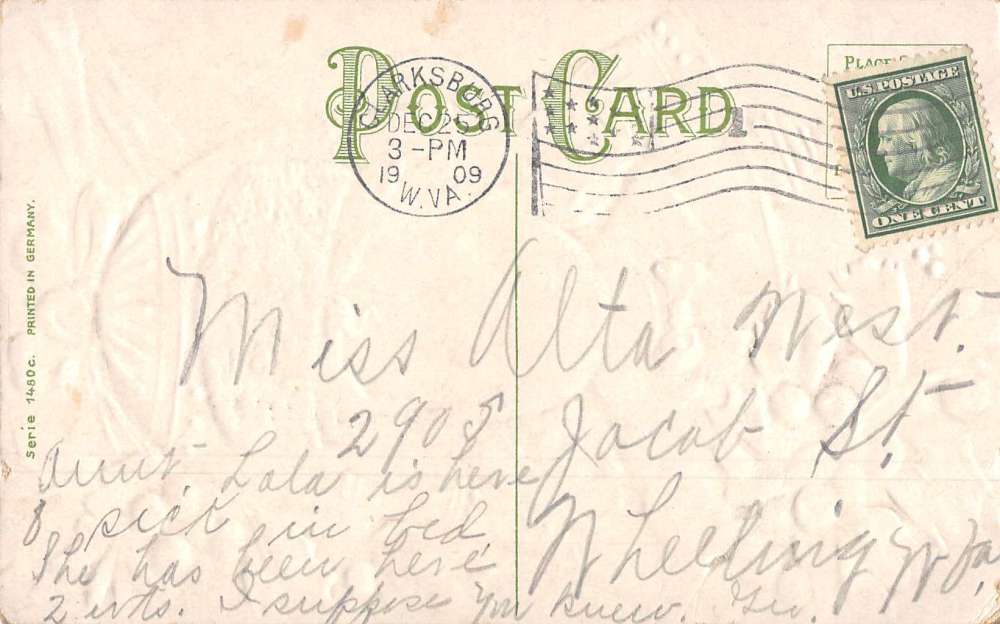 POST CARD
PLACE
CLARKSBURG
DEC 25
3-PM
1909
W.VA.
U.S. POSTAGE
ONE CENT
Serie 1480c. PRINTED IN GERMANY.
Miss Alta West.
2905 Jacob St.
Wheeling W Va,
Aunt Lola is here
& sick in bed,
She has been here
2 wks. I suppose you knew. Geo.